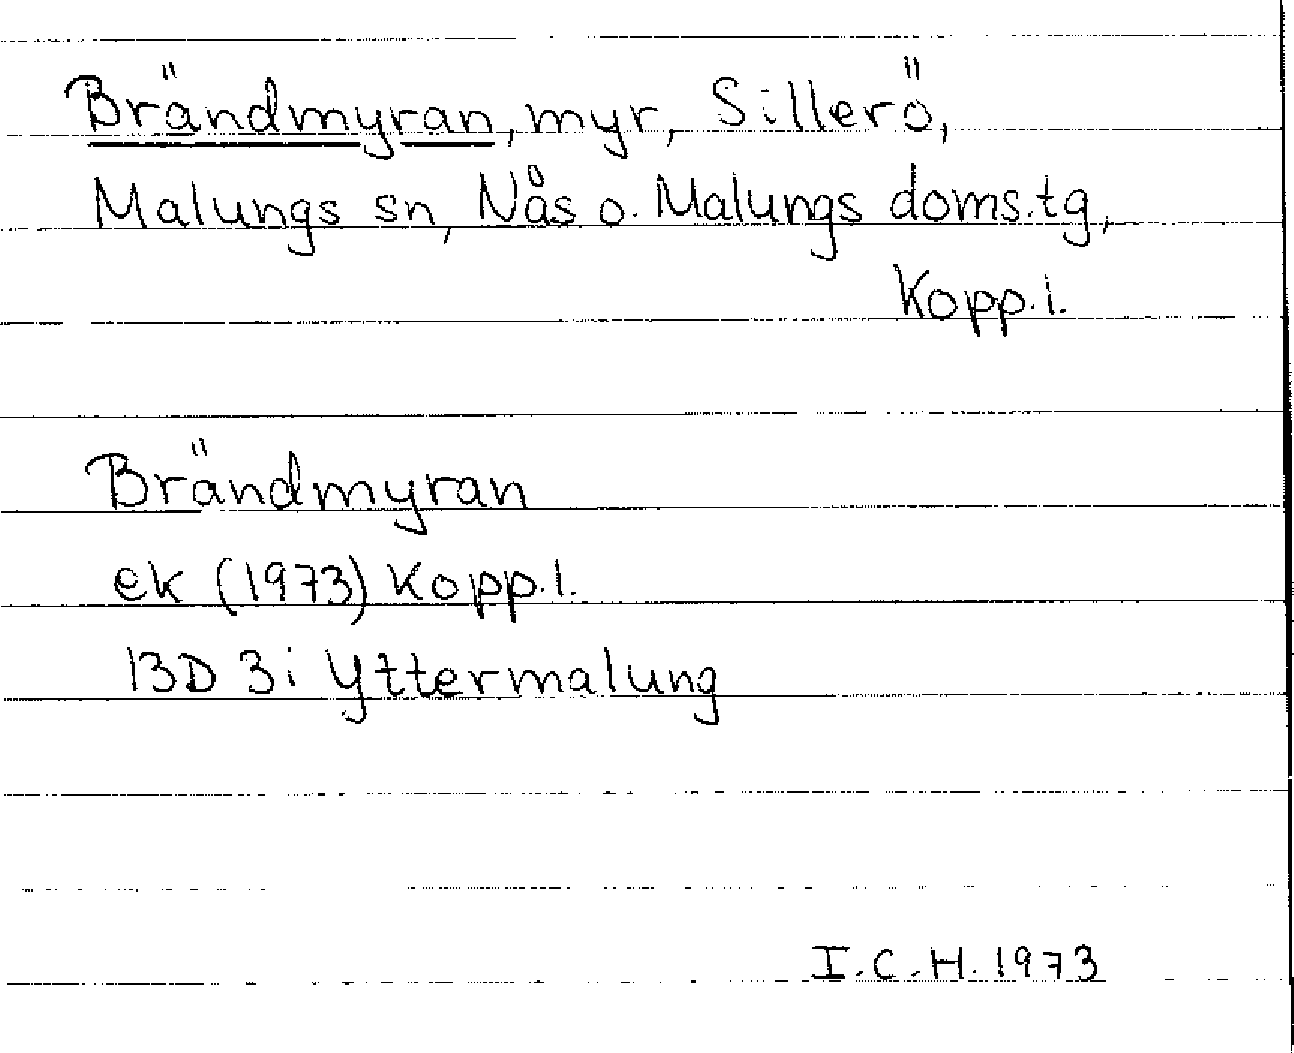 Brändmyran, myr, Sillerö,
Malungs sn, Nås o. Malungs doms.tg,
Kopp.l.
Brändmyran
ek (1973) Kopp.l.
13D 3i Yttermalung
I.C.H. 1973